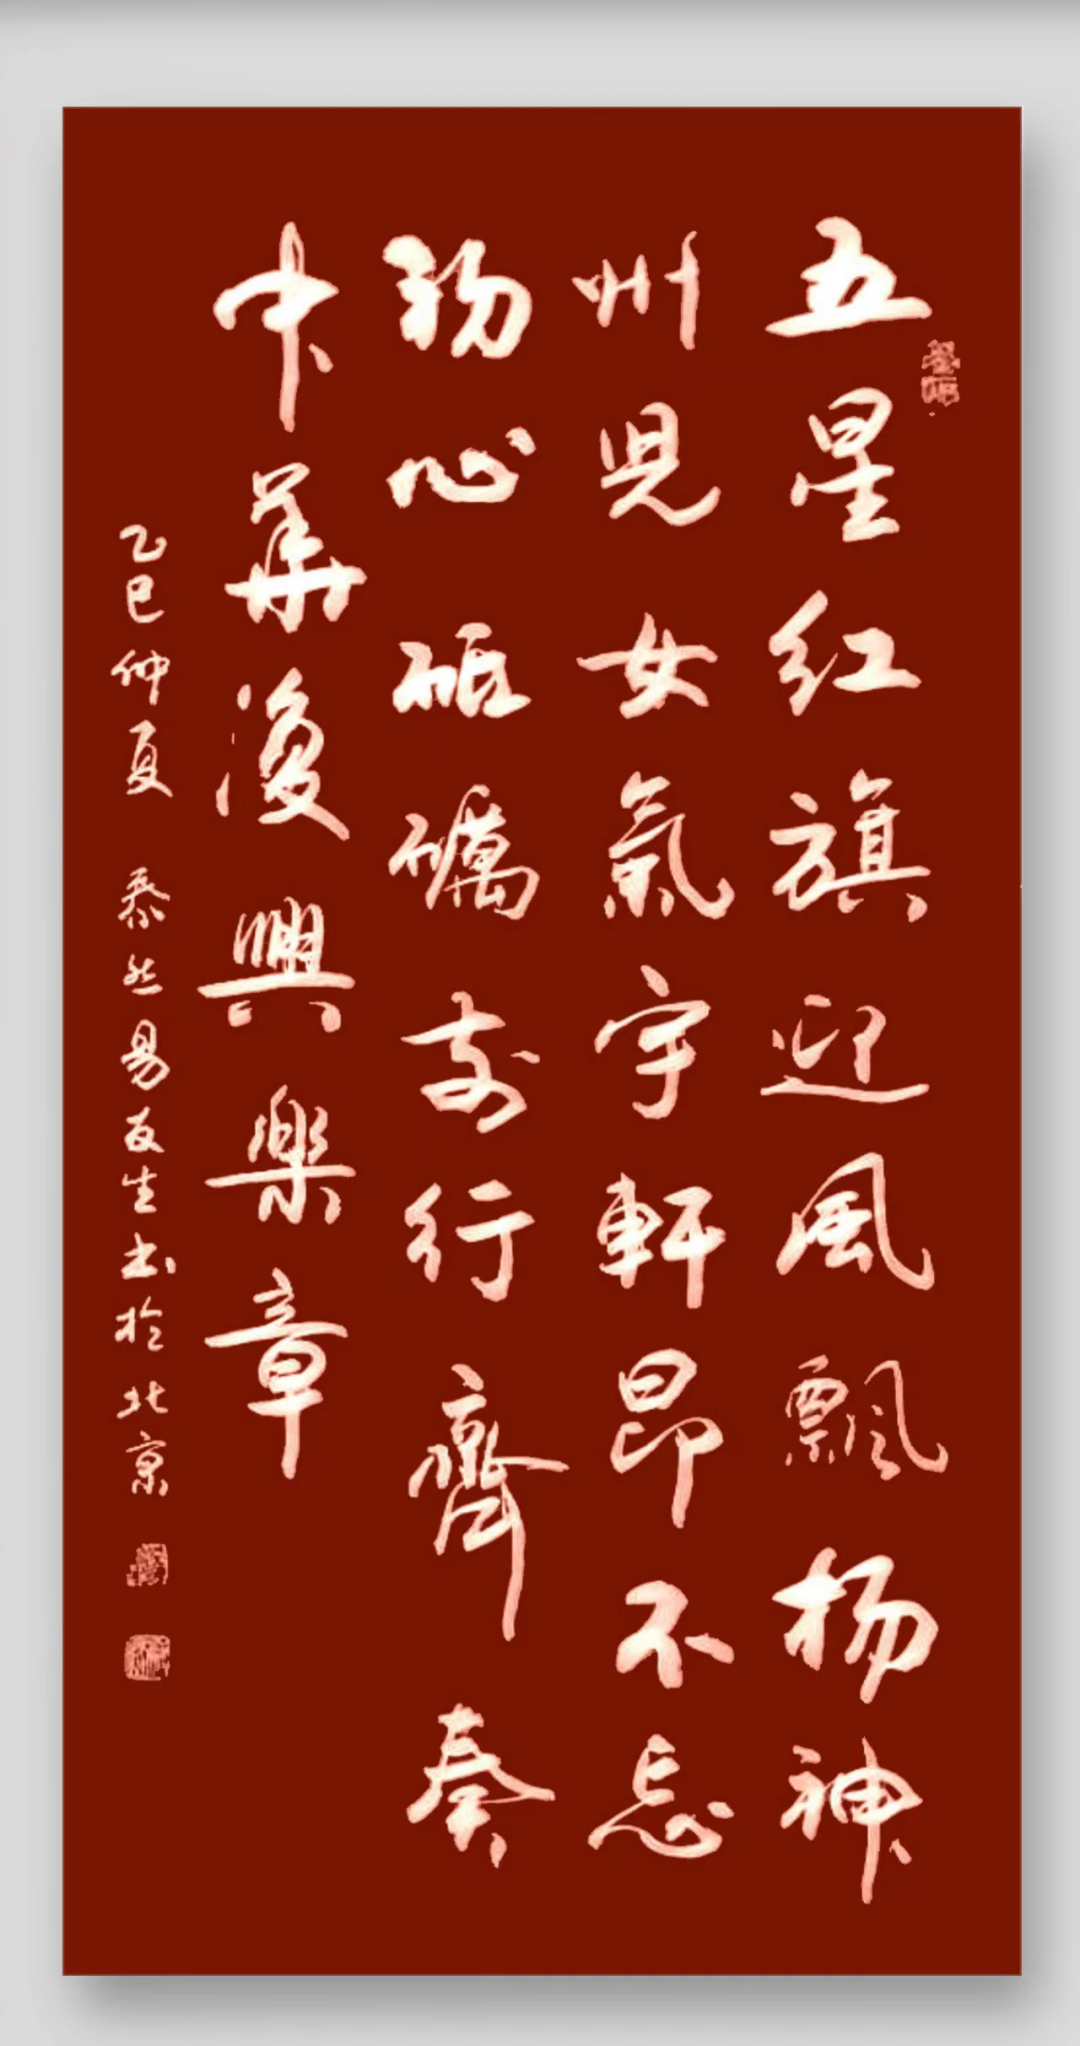 五星红旗迎風飄杨神
州児女氣宇軒昂不忘
初心砥礪前行齊奏
中華復興樂章
乙巳仲夏 泰然易友生书於北京